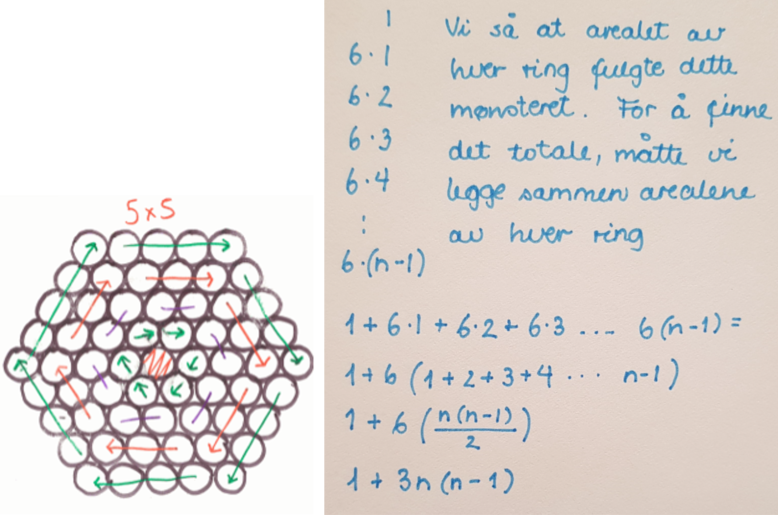 5×5
1
6·1
6·2
6·3
6·4
⋮
6·(n-1)
Vi så at arealet av
hver ring fulgte dette
mønsteret. For å finne
det totale, måtte vi
legge sammen arealene
av hver ring
1+6·1+6·2+6·3 .... 6(n-1)=
1+6(1+2+3+4 ... n-1)
1+6(n(n-1)/2)
1+3n(n-1)